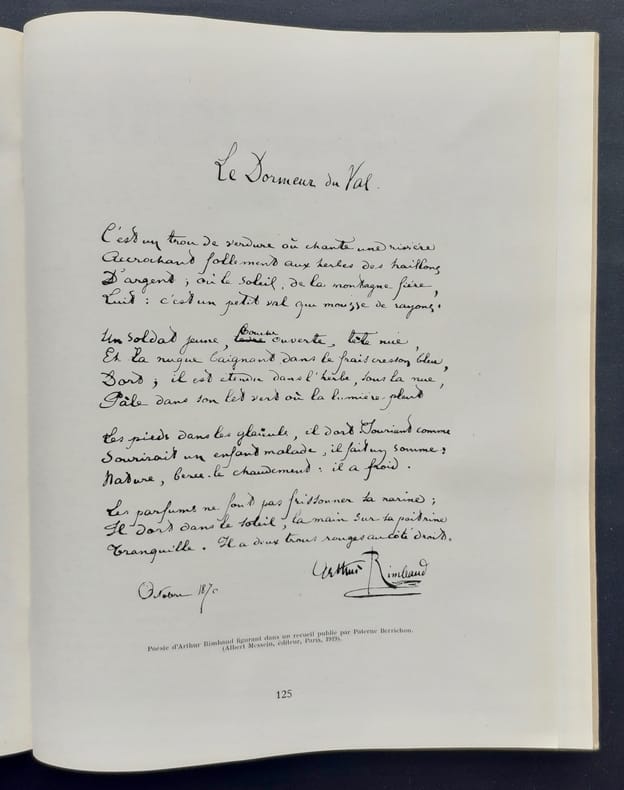 Le Dormeur du Val.
C'est un trou de verdure où chante une rivière
Accrochant follement aux herbes des haillons
D'argent ; où le soleil, de la montagne fière,
Luit : c'est un petit val qui mousse de rayons.
Un soldat jeune, bouche ouverte, tête nue,
Et la nuque baignant dans le frais cresson bleu,
Dort ; il est étendu dans l'herbe, sous la nue,
Pâle dans son lit vert où la lumière pleut
Les pieds dans les glaïeuls, il dort. Souriant comme
Sourirait un enfant malade, il fait un somme :
Nature, berce-le chaudement : il a froid.
Les parfums ne font pas frissonner sa narine ;
Il dort dans le soleil, la main sur sa poitrine
Tranquille. Il a deux trous rouges au côté droit.
Arthur Rimbaud
Octobre 1870
Poésie d'Arthur Rimbaud figurant dans un recueil publié par Paterne Berrichon.
(Albert Messein, éditeur, Paris, 1919).
125